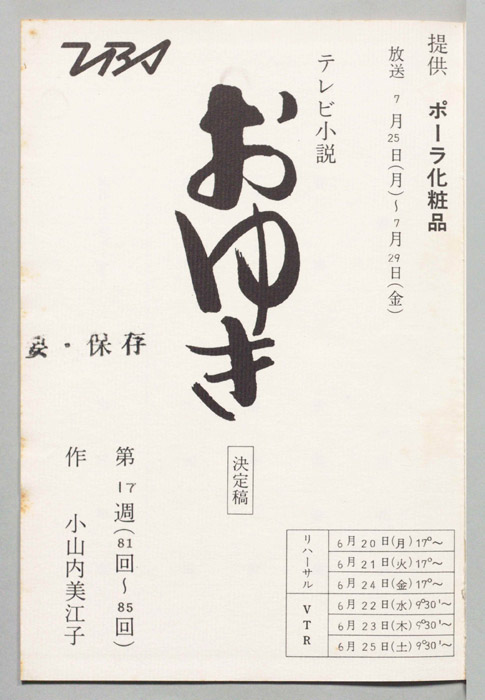 提供 ポーラ化粧品
放送 7月25日(月)~7月29日(金)
テレビ小説
おゆき
TBS
要・保存
決定稿
第17週(81回~85回)
作 小山内美江子
リハーサル
6月20日(月)17°~
6月21日(火)17°~
6月24日(金)17°~
VTR
6月22日(水)9°30'~
6月23日(木)9°30'~
6月25日(土)9°30'~